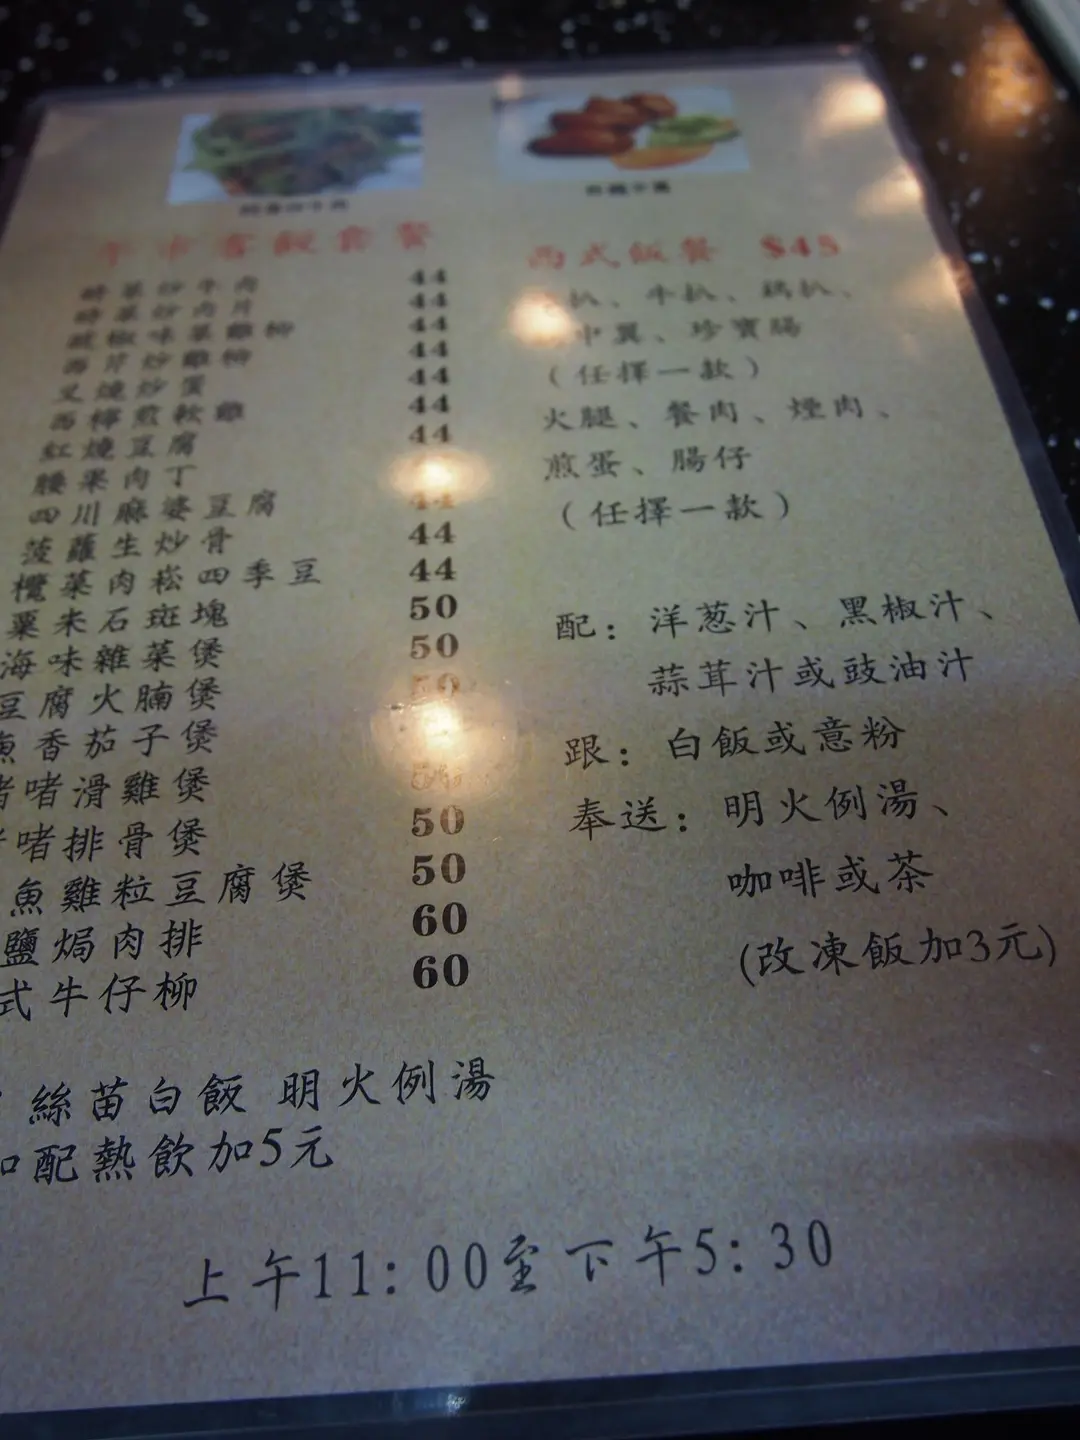 午市客飯套餐
時菜炒牛肉 44
時菜炒肉片 44
椒味菜雞柳 44
西芹炒雞柳 44
叉燒炒蛋 44
西檸煎軟雞 44
紅燒豆腐 44
腰果肉丁
四川麻婆豆腐 44
菠蘿生炒骨 44
欖菜肉崧四季豆 44
粟米石斑塊 50
海味雜菜煲 50
豆腐火腩煲 50
魚香茄子煲
啫滑雞煲 50
啫排骨煲 50
魚雞粒豆腐煲 50
鹽焗肉排 60
式牛仔柳 60
絲苗白飯 明火例湯
配熱飲加5元
西式飯餐 $45
扒、牛扒、鷄扒、
中翼、珍寶腸
(任擇一款)
火腿、餐肉、煙肉、
煎蛋、腸仔
(任擇一款)
配: 洋葱汁、黑椒汁、
蒜茸汁或豉油汁
跟: 白飯或意粉
奉送: 明火例湯、
咖啡或茶
(改凍飯加3元)
上午11:00至下午5:30